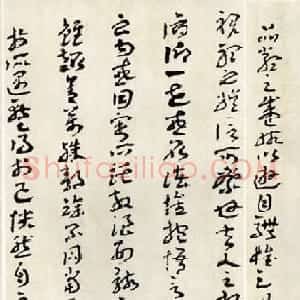 品類之盛所以遊目騁懷足以
視聽之娛信可樂也夫人之
俯仰一世或取諸懷抱悟言
之內或因寄所託放浪形骸
雖趣舍萬殊靜躁不同當
於所遇暫得於己快然自
Shufaziliao.com